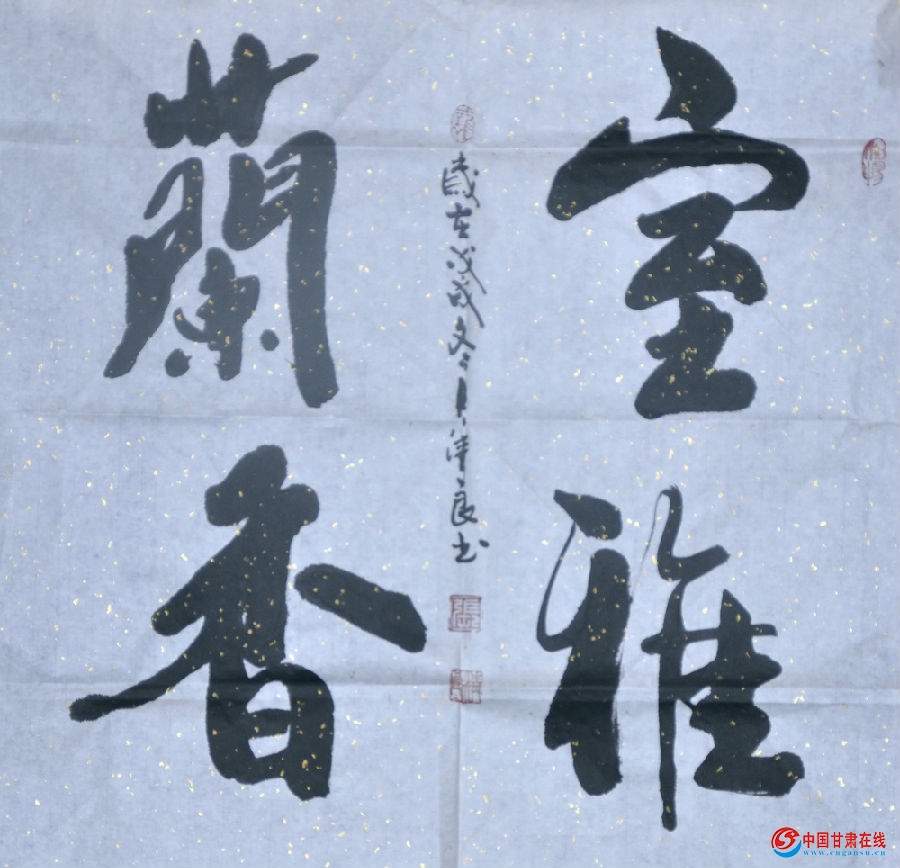 室雅
蘭香
歲在戊戌冬津良书
張
中国甘肃在线
www.cngansu.cn